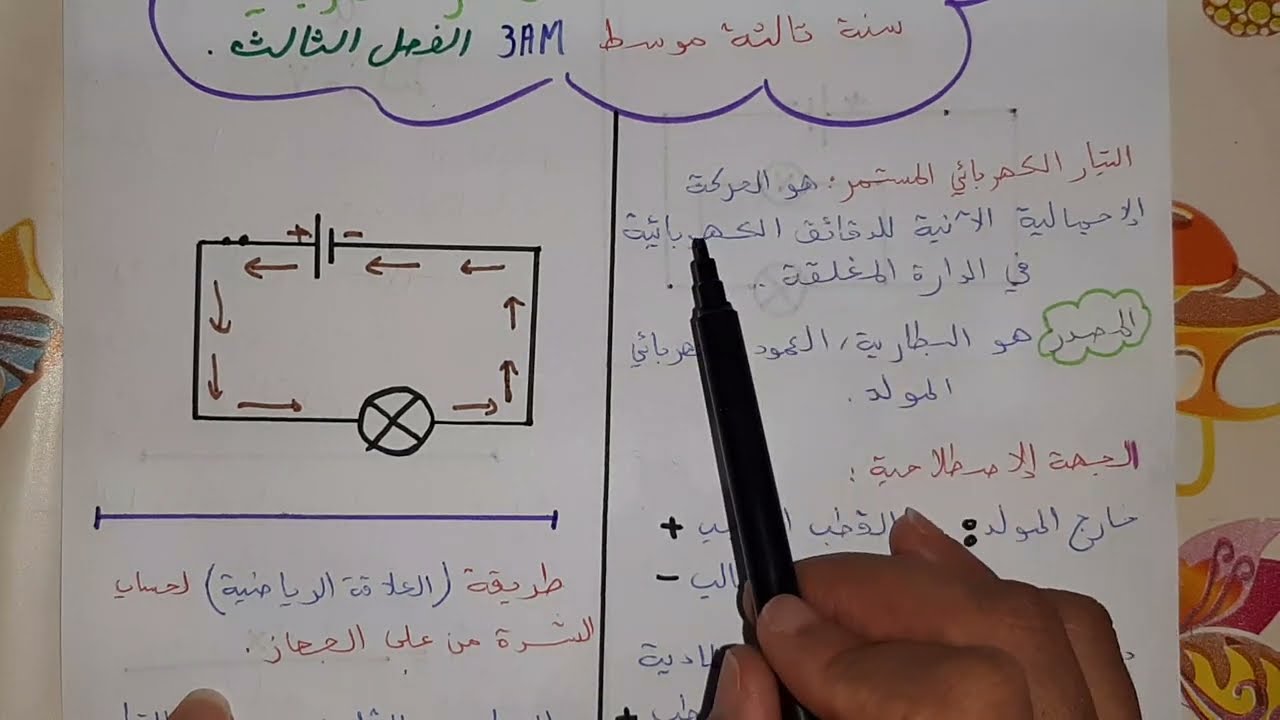 سنة ثالثة موسط 3AM الفصل الثالث.
التيار الكهربائي المستمر: هو الحركة
الإجمالية الآنية للدقائق الكهربائية
في الدارة المغلقة.
المصدر هو البطارية، العمود
المولد.
الجهة الإصطلاحية:
خارج المولد: القطب +
-
+
+ -
طريقة (العلاقة الرياضية) لحساب
الشدة من على الجهاز.